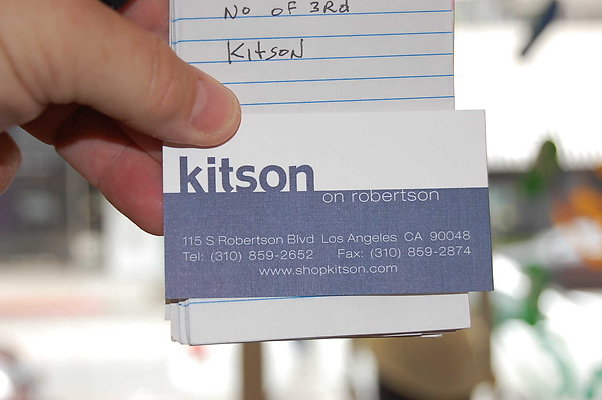 No of 3Rd
Kitson
kitson
on robertson
115 S Robertson Blvd Los Angeles CA 90048
Tel: (310) 859-2652 Fax: (310) 859-2874
www.shopkitson.com